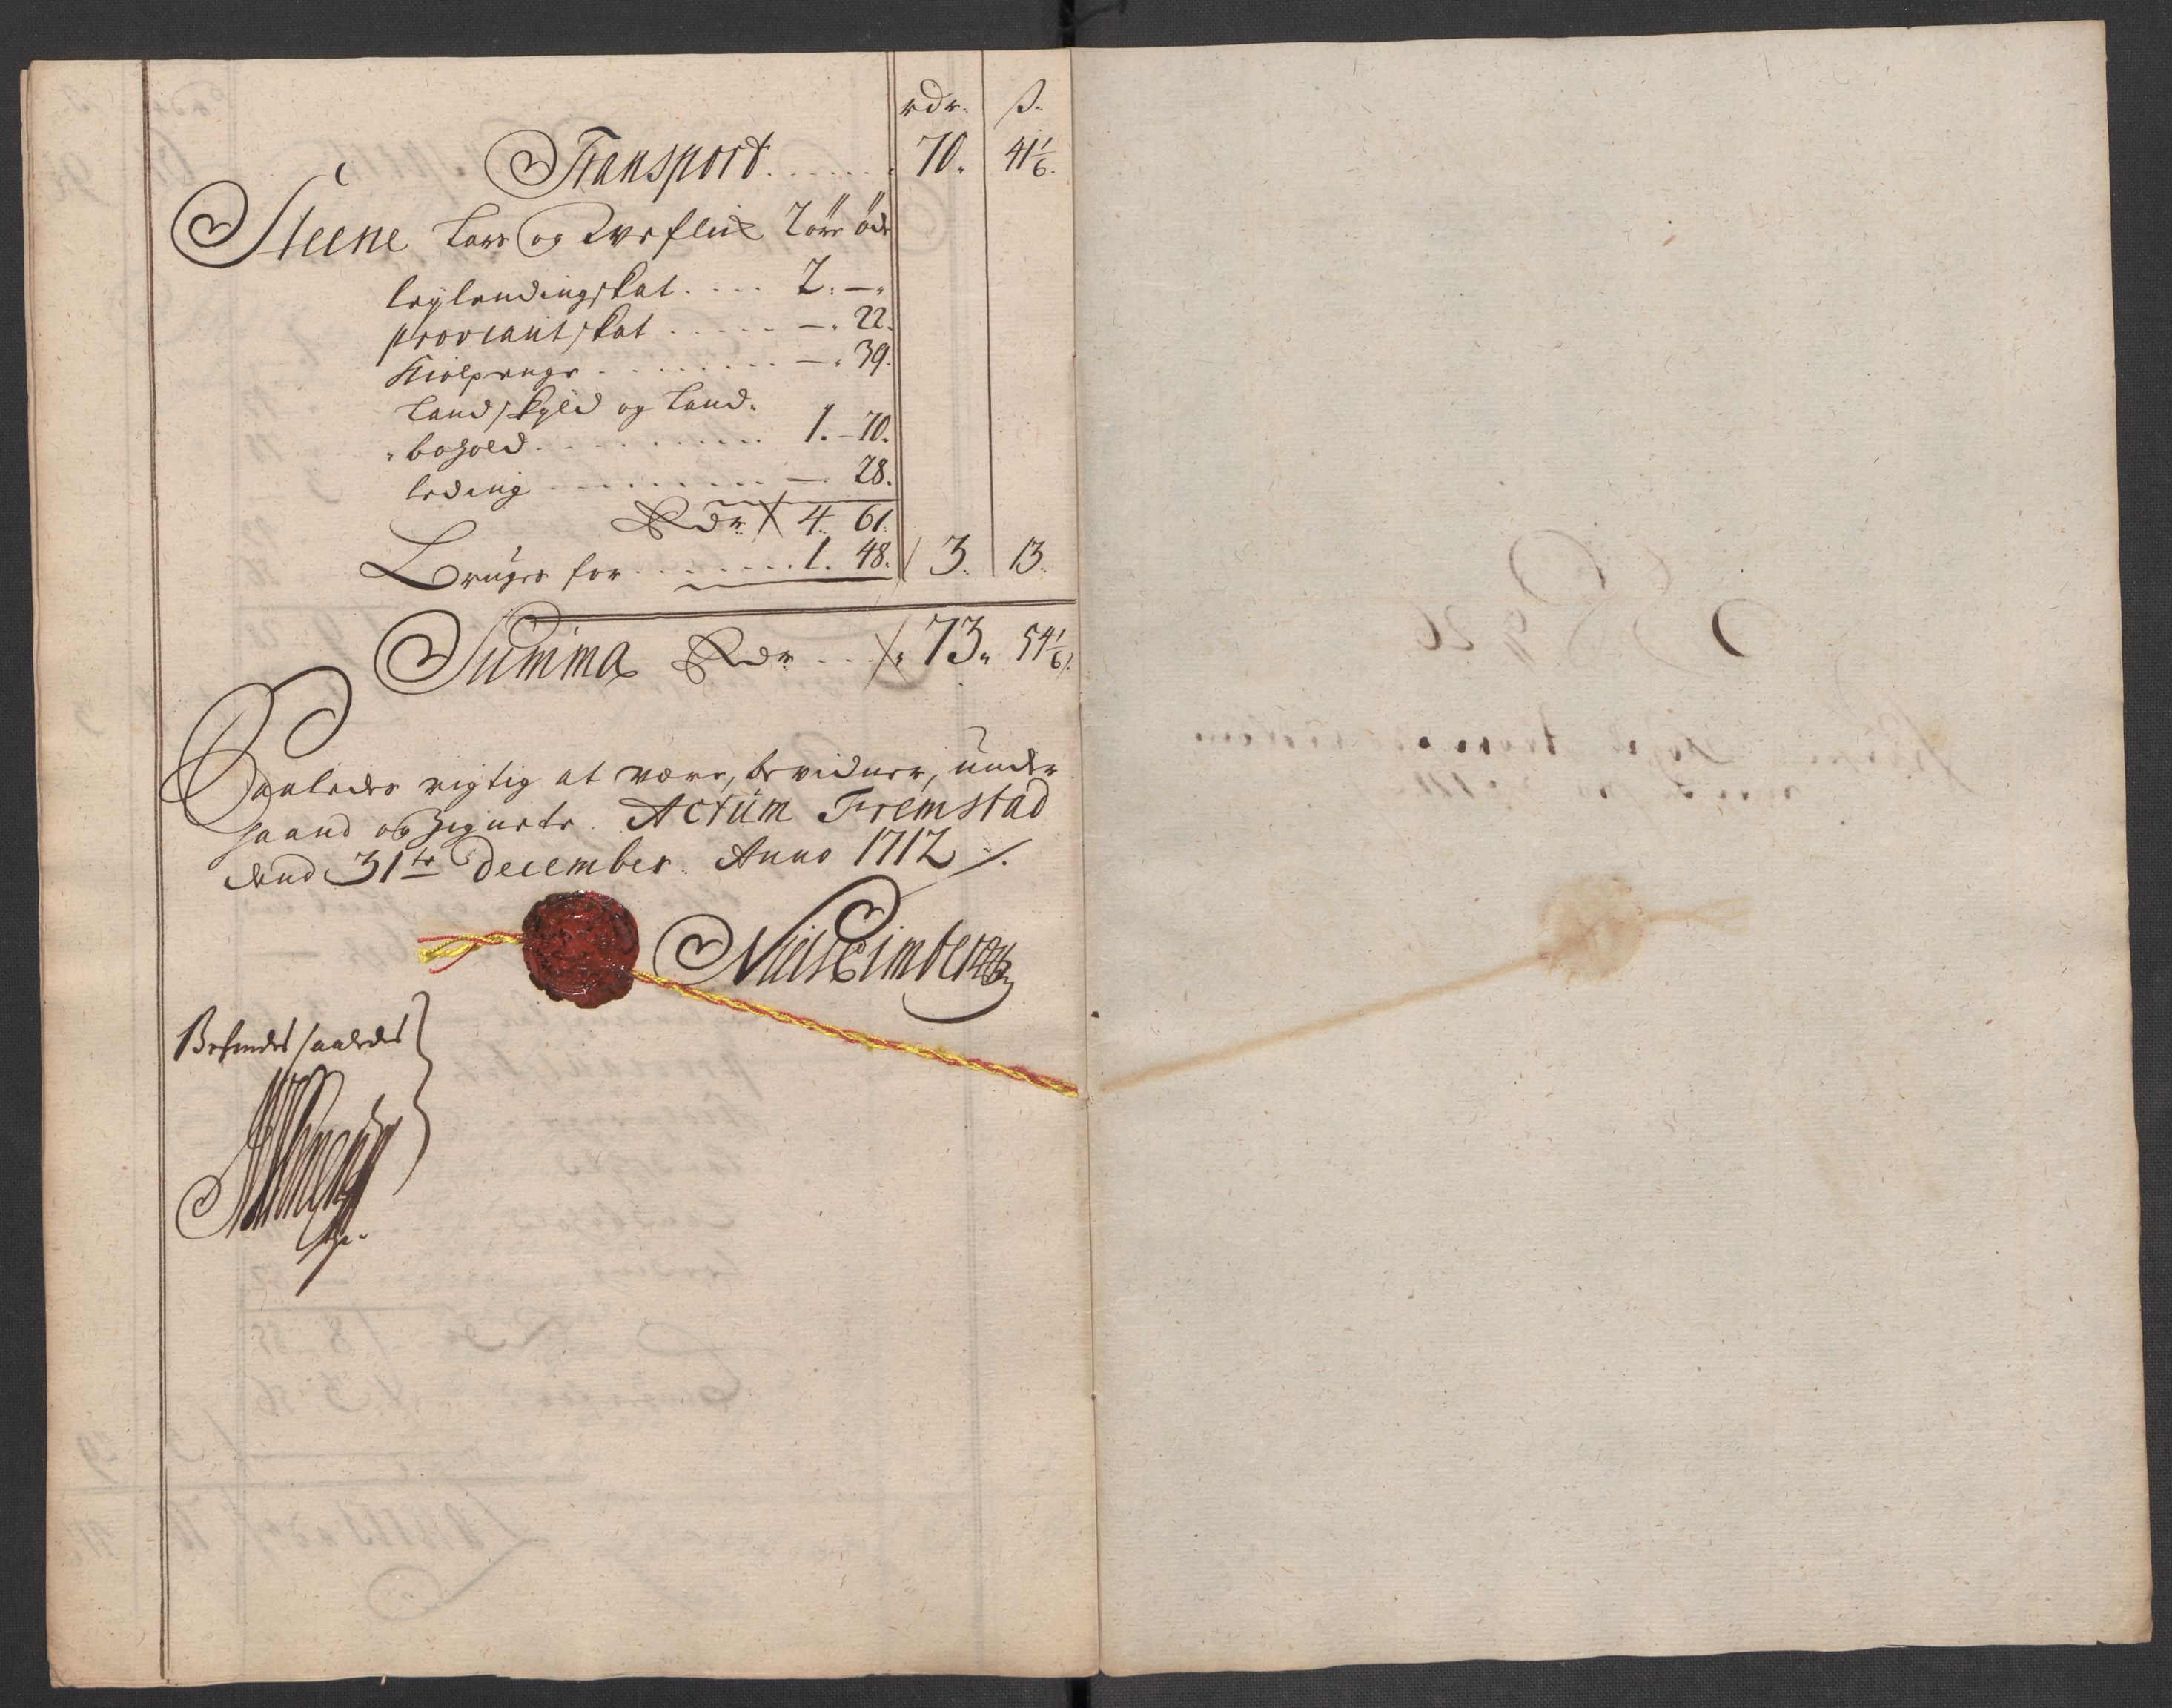 rdr. ß.
Transport . . . . . . 70. 41 1/6.
Steene Lars og 2 øre øde
leylendingskat . . . . 2. —.
proviantskat . . . . . —. 22.
Kiolpenge . . . . . . . —. 39.
Landskyld og Land-
bohold . . . . . . . . . 1. – 70.
leding . . . . . . . . . — 28.
Rdr 4. 61.
Bruges for . . . . . . . 1. 48. 3. 13.
Summa Rdr . . . 73. 54 1/6.
Saaledes rigtig at være, bevidner, under
haand og Zignete. Actum Fremstad
dend 31te December. Anno 1712 ./.
Niels Eimberg
Befindes saaledes